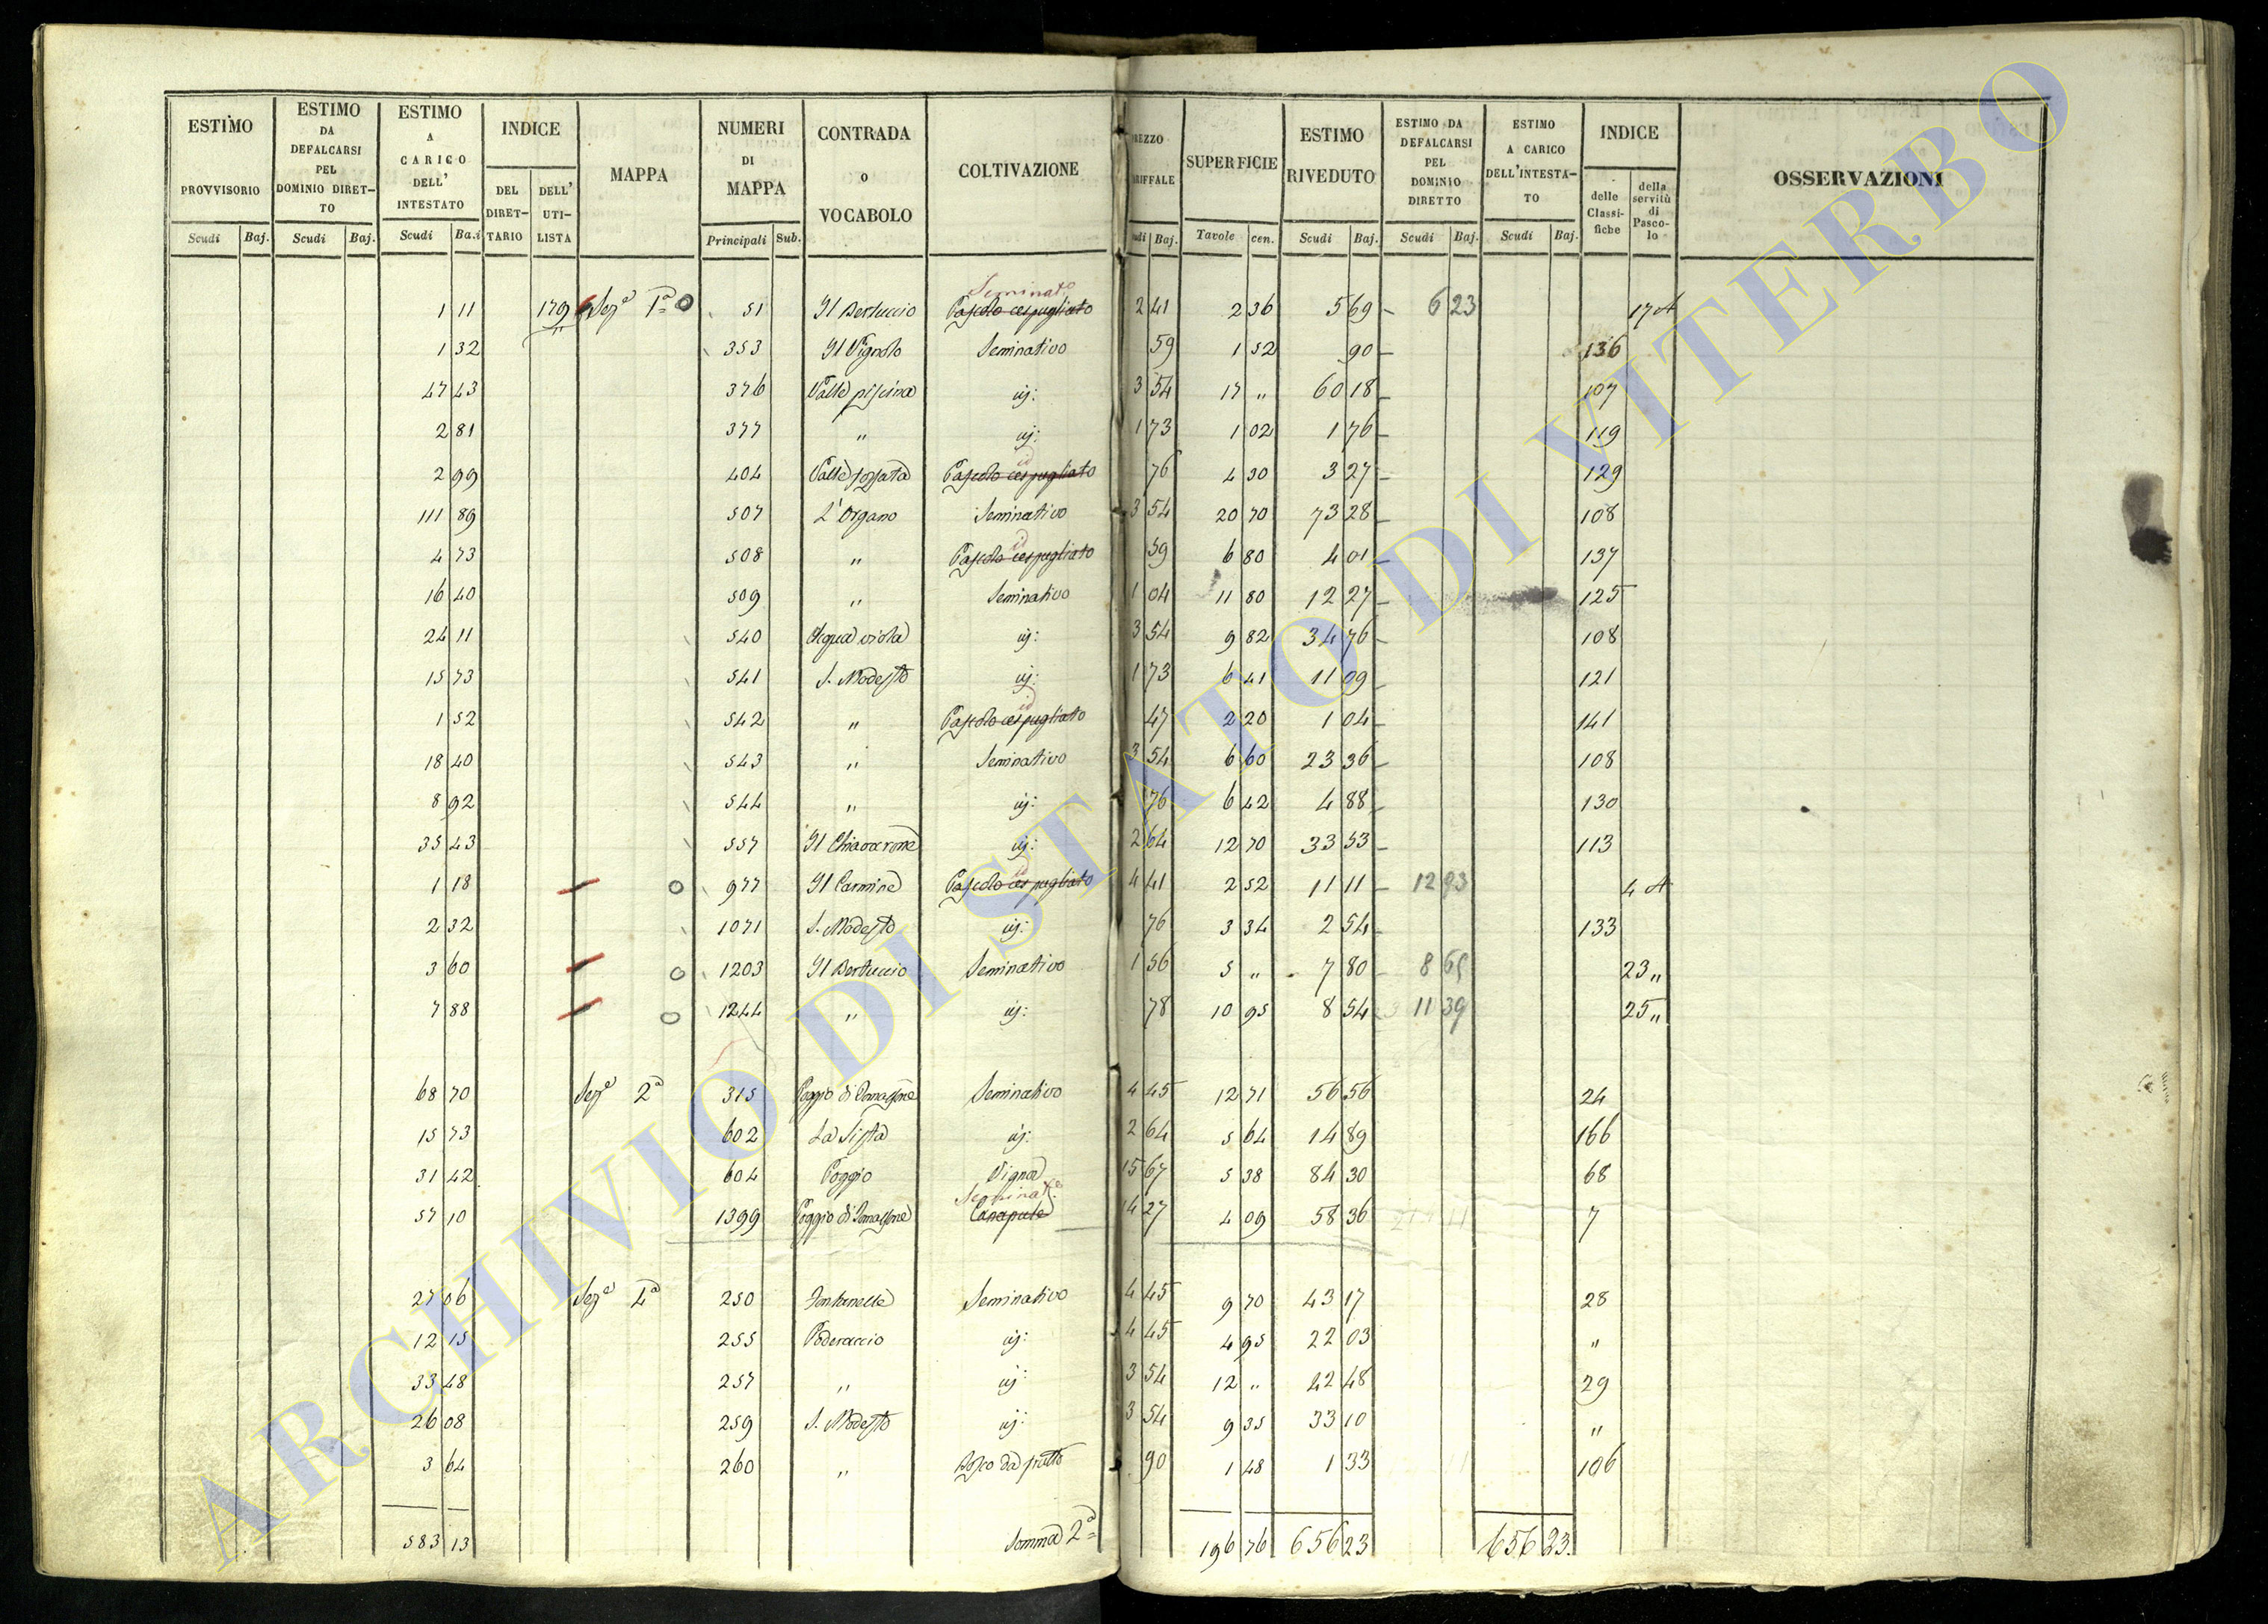 ESTIMO PROVVISORIO | ESTIMO DA DEFALCARSI PEL DOMINIO DIRETTO | ESTIMO A CARICO DELL' INTESTATO | INDICE | MAPPA | NUMERI DI MAPPA | CONTRADA o VOCABOLO | COLTIVAZIONE | SUPERFICIE | ESTIMO RIVEDUTO | ESTIMO DA DEFALCARSI PEL DOMINIO DIRETTO | ESTIMO A CARICO DELL'INTESTATO | INDICE | OSSERVAZIONI
DEL DIRETTARIO | DELL' UTILISTA | delle Classifiche | della servitù di Pascolo
Scudi Baj. | Scudi Baj. | Scudi Baj. | Principali Sub. | Baj. | Tavole cen. | Scudi Baj. | Scudi Baj. | Scudi Baj.
Seminato
1 11 179 Sez.e 1a 51 Il Bertuccio Pascolo cespugliato 2 41 2 36 5 69 6 23 17 A
1 32 353 Il Vignolo Seminativo 59 1 52 90 136
47 43 376 Valle piscina id: 3 54 17 " 60 18 107
2 81 377 " id: 1 73 1 02 1 76 119
id
2 99 404 Valle fossata Pascolo cespugliato 76 4 30 3 27 129
111 89 507 L'Organo Seminativo 3 54 20 70 73 28 108
id
4 73 508 " Pascolo cespugliato 59 6 80 4 01 137
16 40 509 " Seminativo 1 04 11 80 12 27 125
24 11 540 Acqua viola id: 3 54 9 82 34 76 108
15 73 541 S. Modesto id: 1 73 6 41 11 09 121
id
1 52 542 " Pascolo cespugliato 47 2 20 1 04 141
18 40 543 " Seminativo 3 54 6 60 23 36 108
8 92 544 " id: 76 6 42 4 88 130
35 43 557 Il Chiavarone id: 2 64 12 70 33 53 113
id
1 18 977 Il Carmine Pascolo cespugliato 4 41 2 52 11 11 12 93 4 A
2 32 1071 S. Modesto id: 76 3 34 2 54 133
3 60 1203 Il Bertuccio Seminativo 1 56 5 " 7 80 8 65 23 "
7 88 1244 " id: 78 10 95 8 54 11 39 25 "
68 70 Sez.e 2a 315 Poggio di Seminativo 4 45 12 71 56 56 24
15 73 602 La Sista id: 2 64 5 64 14 89 166
31 42 604 Poggio Vigna 15 67 5 38 84 30 68
Seminat.o
57 10 1399 Poggio di Canapule 14 27 4 09 58 36 7
27 06 Sez.e 4a 250 Fontanelle Seminativo 4 45 9 70 43 17 28
12 15 255 Poderaccio id: 4 45 4 95 22 03 "
33 48 257 " id: 3 54 12 " 42 48 29
26 08 259 S. Modesto id: 3 54 9 35 33 10 "
3 64 260 " Bosco da frutto 90 1 48 1 33 106
583 13 Somma 2a 196 76 656 23 656 23
ARCHIVIO DI STATO DI VITERBO